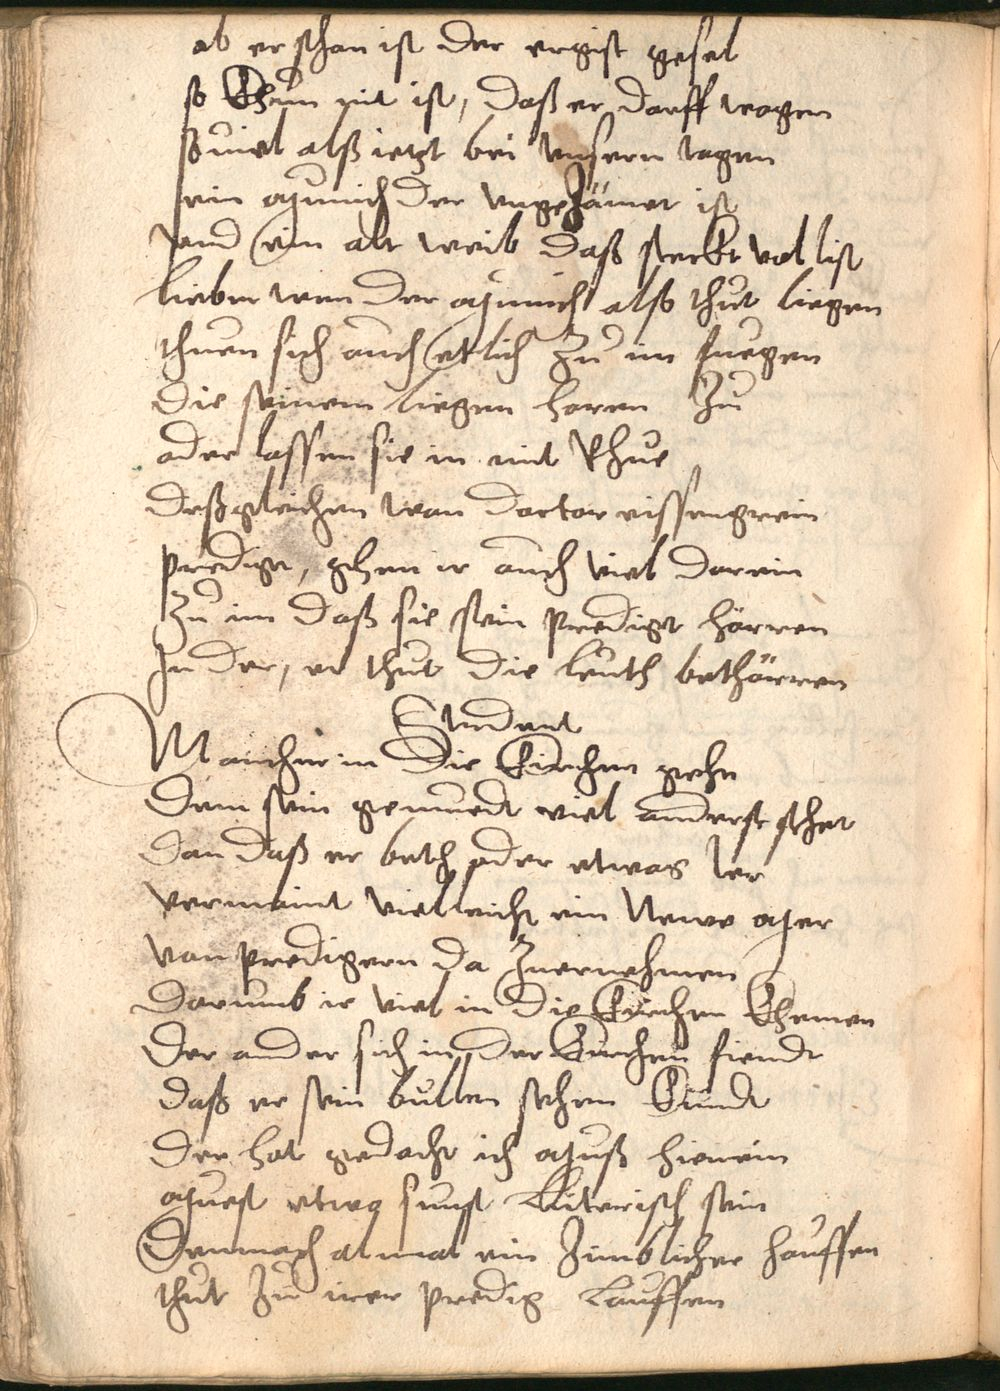 ob er schon ist der ergist gesel
so Khun nit ist, daß er dorff wogen
souiel alß ietzt bei vnsern tagen
ein Munich der vngehämet ist
vnd ein alt weib daß steckt vol list
lieber wen der Munich also thut liegen
thuen sich auch etlich zu im fuegen
die seinem liegen horen zu
oder lassen sie in mit Rhue
deßgleichen wan doctor eissengrein
prediget, gehen ir auch viel dorein
zu im daß sie sein predigt hörren
In der, er thut die leuth bethörren
Student
Mancher in die Kirchen gehe
dem sein gemuedt viel anderst stehet
dan daß er beth oder etwas ler
vermaint vielleicht ein Newe Mer
von predigern da zuernehmen
dorumb ir viel in die Kirchen Khemen
der ander sich in der Kirchen fiendt
daß er sein bullen sehen Kundt
der hat gedacht ich Muß hienein
Muest etwa sunst Luterisch sein
dennoch almal ein zimblicher hauffen
thut zu irer predig lauffen